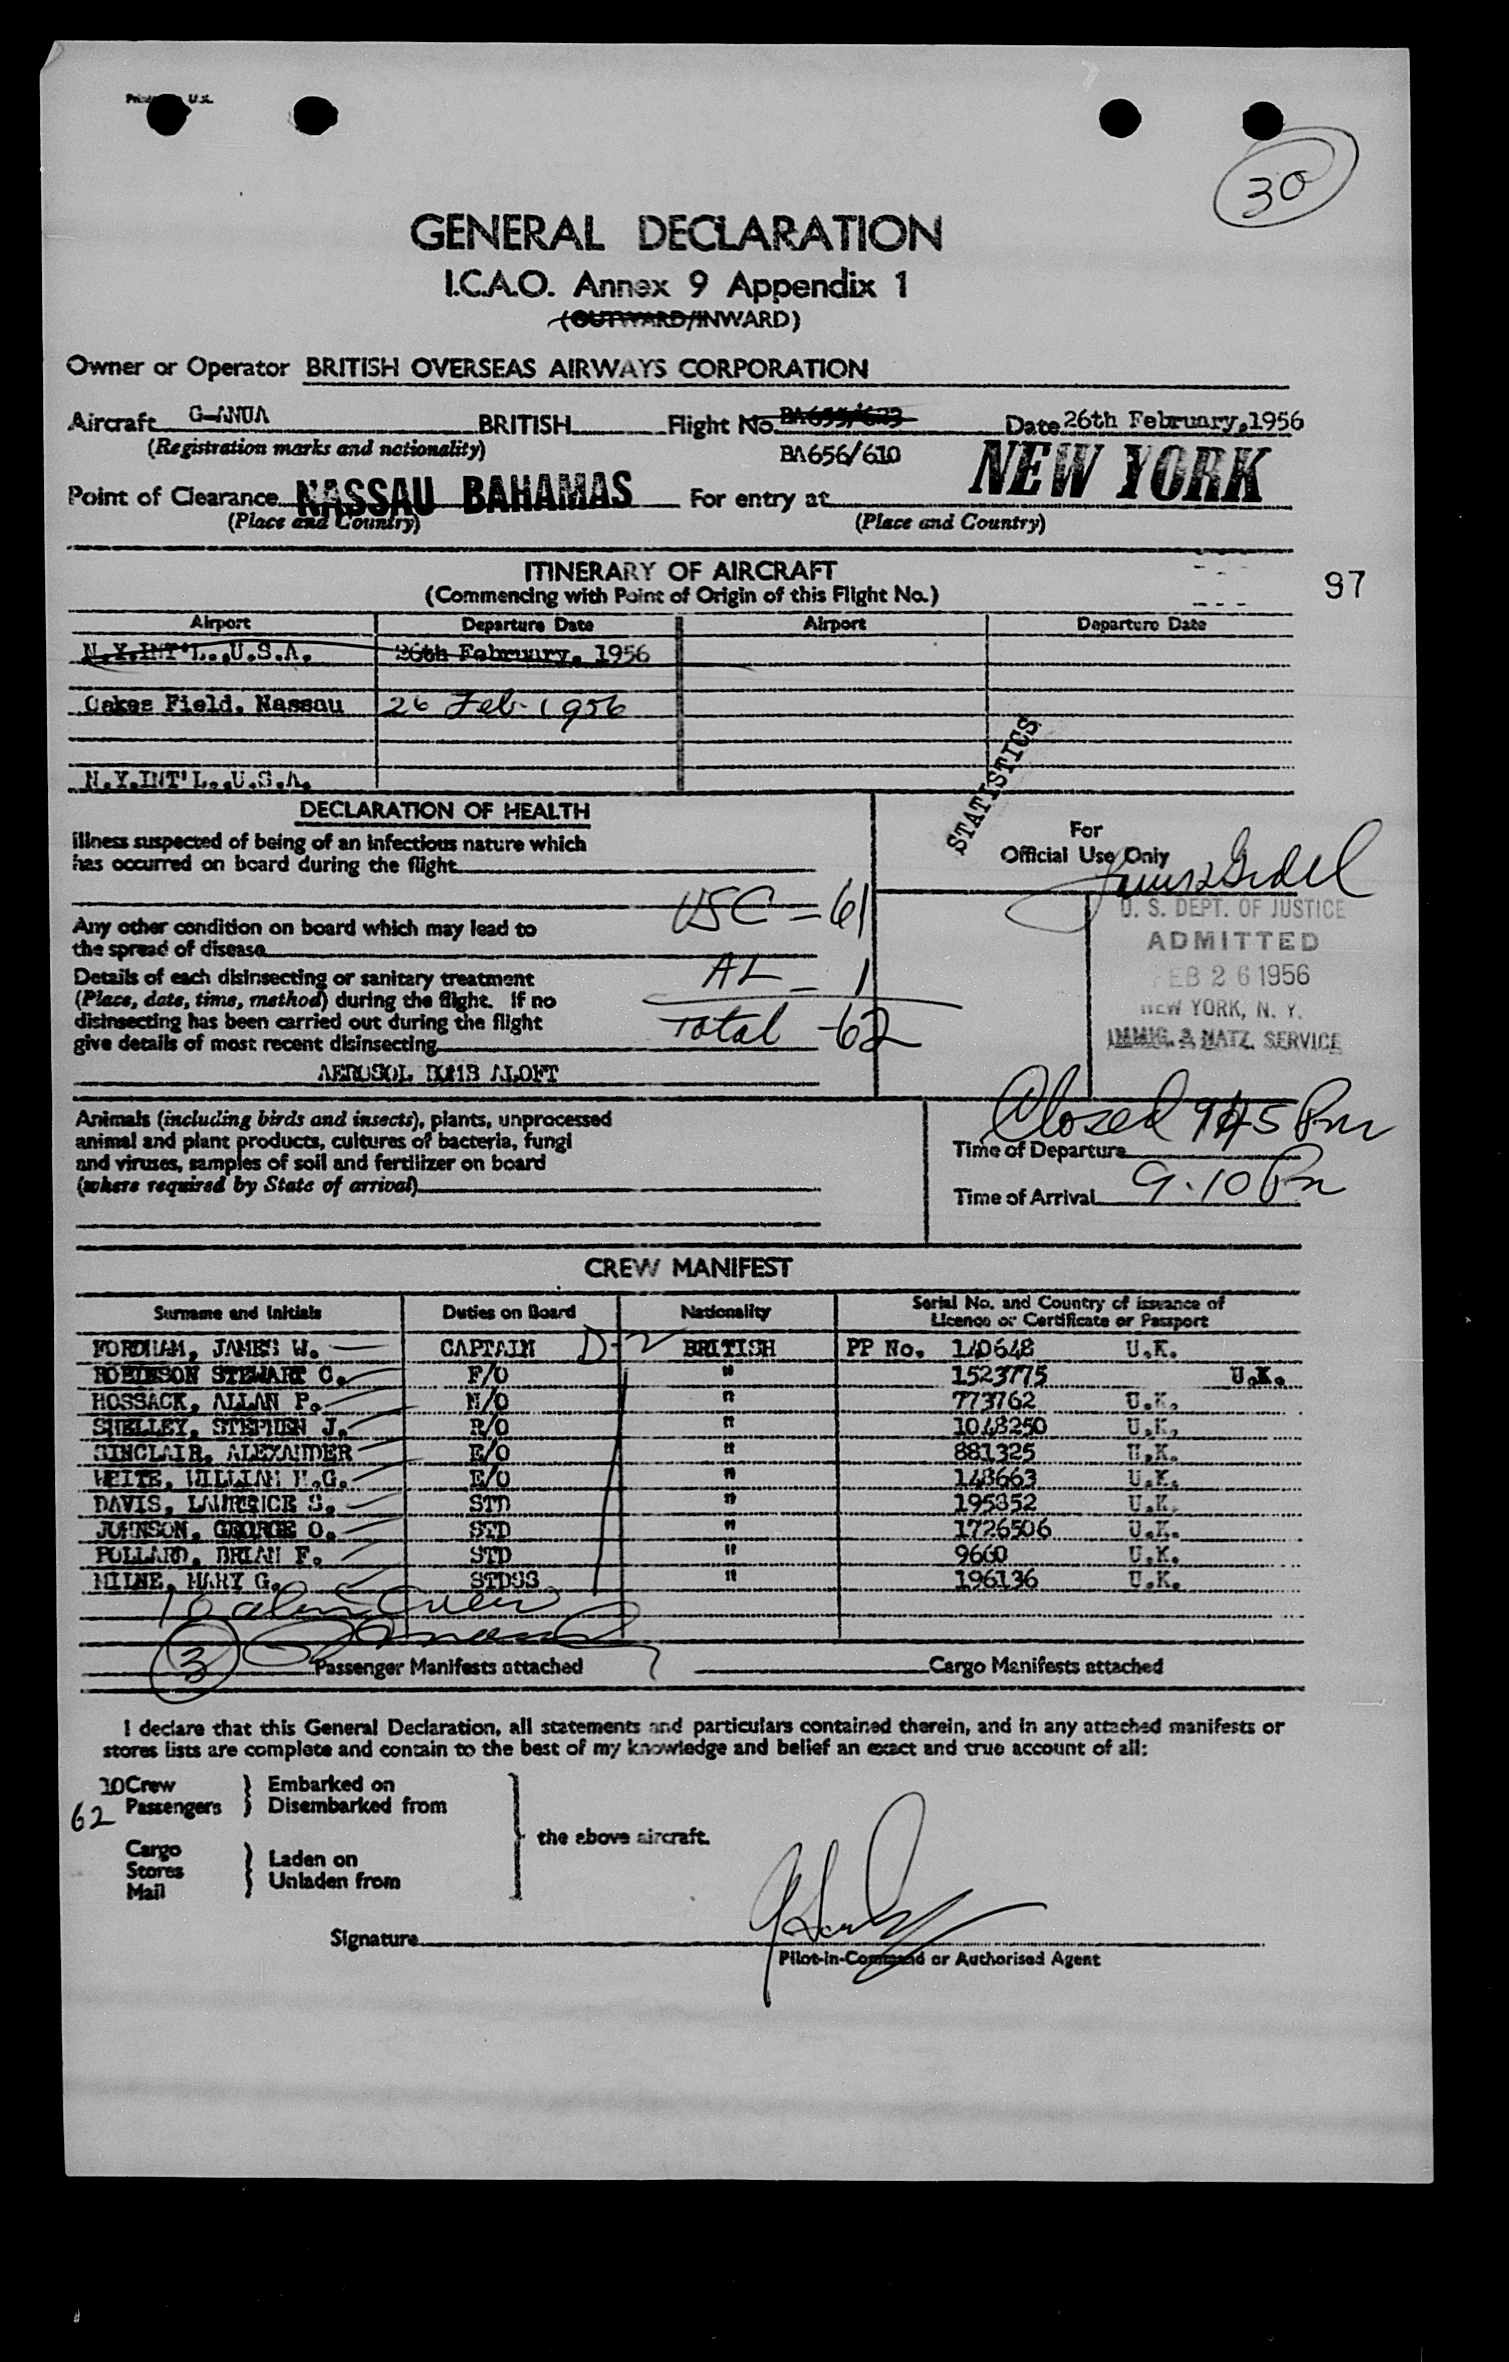 Printed in U.K.
30
GENERAL DECLARATION
I.C.A.O. Annex 9 Appendix 1
(OUTWARD/INWARD)
Owner or Operator BRITISH OVERSEAS AIRWAYS CORPORATION
Aircraft G-ANUA BRITISH Flight No. Date 26th February, 1956
(Registration marks and nationality) BA656/610
Point of Clearance NASSAU BAHAMAS For entry at NEW YORK
(Place and Country) (Place and Country)
ITINERARY OF AIRCRAFT
(Commencing with Point of Origin of this Flight No.)
97
Airport Departure Date Airport Departure Date
N.Y.INT'L.,U.S.A. 26th February, 1956
Oakes Field, Nassau 26 Feb. 1956
N.Y.INT'L.,U.S.A.
STATISTICS
DECLARATION OF HEALTH
Illness suspected of being of an infectious nature which
has occurred on board during the flight
For
Official Use Only
USC = 61
Any other condition on board which may lead to
the spread of disease
AL - 1
Details of each disinsecting or sanitary treatment
(Place, date, time, method) during the flight. If no
disinsecting has been carried out during the flight
give details of most recent disinsecting
Total - 62
AEROSOL BOMB ALOFT
U. S. DEPT. OF JUSTICE
ADMITTED
FEB 26 1956
NEW YORK, N. Y.
IMMIG. & NATZ. SERVICE
Animals (including birds and insects), plants, unprocessed
animal and plant products, cultures of bacteria, fungi
and viruses, samples of soil and fertilizer on board
(where required by State of arrival)
Closed 945 Pm
Time of Departure
Time of Arrival 9.10 Pm
CREW MANIFEST
Surname and Initials Duties on Board Nationality Serial No. and Country of issuance of
Licence or Certificate or Passport
FORDHAM, JAMES W. CAPTAIN D-2 BRITISH PP No. 140648 U.K.
ROBINSON STEWART C. F/O " 1523775 U.K.
HOSSACK, ALLAN P. N/O " 773762 U.K.
SHELLEY, STEPHEN J. R/O " 1048250 U.K.
SINCLAIR, ALEXANDER E/O " 881325 U.K.
WHITE, WILLIAM H.G. E/O " 148663 U.K.
DAVIS, LAURENCE S. STD " 195352 U.K.
JOHNSON, GEORGE O. STD " 1726506 U.K.
POLLARD, BRIAN F. STD " 9660 U.K.
MILNE, MARY G. STDSS " 196136 U.K.
10 alien Crew
3 Passenger Manifests attached Cargo Manifests attached
I declare that this General Declaration, all statements and particulars contained therein, and in any attached manifests or
stores lists are complete and contain to the best of my knowledge and belief an exact and true account of all:
10 Crew } Embarked on
62 Passengers } Disembarked from
the above aircraft.
Cargo
Stores } Laden on
Mail } Unladen from
Signature
Pilot-in-Command or Authorised Agent